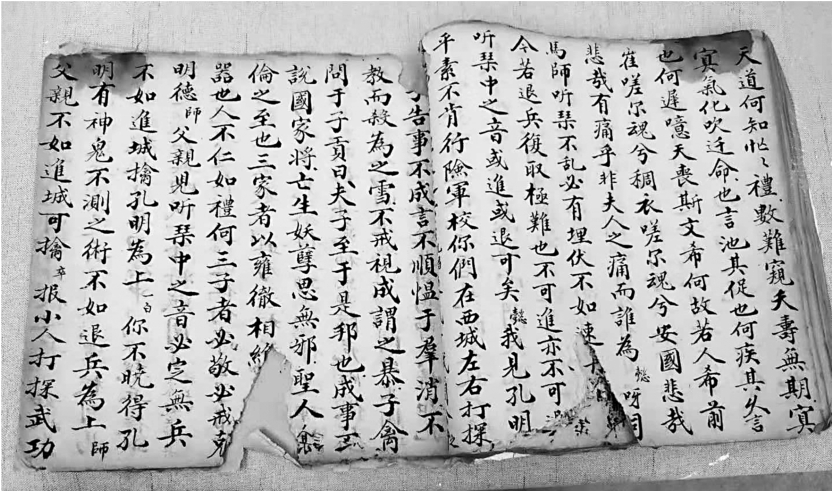 天道何知忙々禮數難窺夭壽無期寞
寞氣化吹迁命也言池其促也何疾其久言
也何遲噫天喪斯文希何故若人希前
崔嗟尔魂兮稠衣嗟尔魂兮安國悲哉
悲哉有痛乎非夫人之痛而誰為 懿 呀
馬師听琴不乱必有埋伏不如速
今若退兵復取極難也不可進亦不可
听琹中之音或進或退可矣 懿 我見孔明
平素不肯行險軍校你們在西城左右打探
告事不成言不順愠于羣消不
教而殺為之雪不戒視成謂之暴子禽
問于子貢曰夫子至于是邦也成事
說國家將亡生妖孽思無邪聖人
倫之至也三家者以雍徹相
器也人不仁如禮何三子者必敬必戒
明德 師 父親見听琹中之音必定無兵
不如進城擒孔明為上 白 你不晓得孔
明有神鬼不測之術不如退兵為上 師
父親不如進城可擒 卒 报小人打探武功